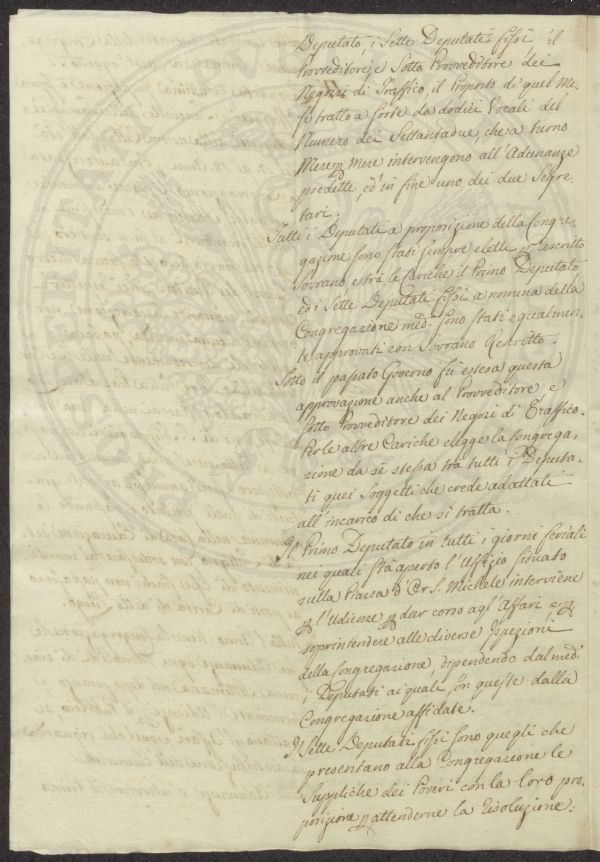 Deputato, i Sette Deputati fissi il
Provveditore, e Sotto Provveditore dei
Negozi di Traffico, il Proposto di quel Me-
se tratto a sorte da dodici Vocali del
Numero dei Settantadue, che a turno
Mese p. Mese intervengono all'Adunanze
predette, ed in fine uno dei due Segre-
tari.
Tutti i Deputati a proposizione della Congre-
gazione sono stati sempre eletti p. Rescritto
Sovrano, e trà le Cariche il Primo Deputato
ed i Sette Deputati fissi a nomina della
Congregazione med. sono stati egualmen-
te approvati con Sovrano Rescritto.
Sotto il passato Governo fù estesa questa
approvazione anche al Provveditore e
Sotto Provveditore dei Negozi di Traffico.
Per le altre Cariche elegge la Congrega-
zione da sè stessa trà tutti i Deputa-
ti quei Soggetti che crede adattati
all'incarico di che si tratta.
Il Primo Deputato in tutti i giorni feriali
nei quali stà aperto l'Uffizio situato
sulla Piazza d'Or S. Michele interviene
p. l'Udienze p. dar corso agl'Affari e p.
soprintendere alle diverse Ispezioni
della Congregazione, dipendendo dal med.
i Deputati ai quali son queste dalla
Congregazione affidate.
I Sette Deputati fissi sono quegli che
presentano alla Congregazione le
Suppliche dei Poveri con la loro pro-
posizione p. attenderne la risoluzione: